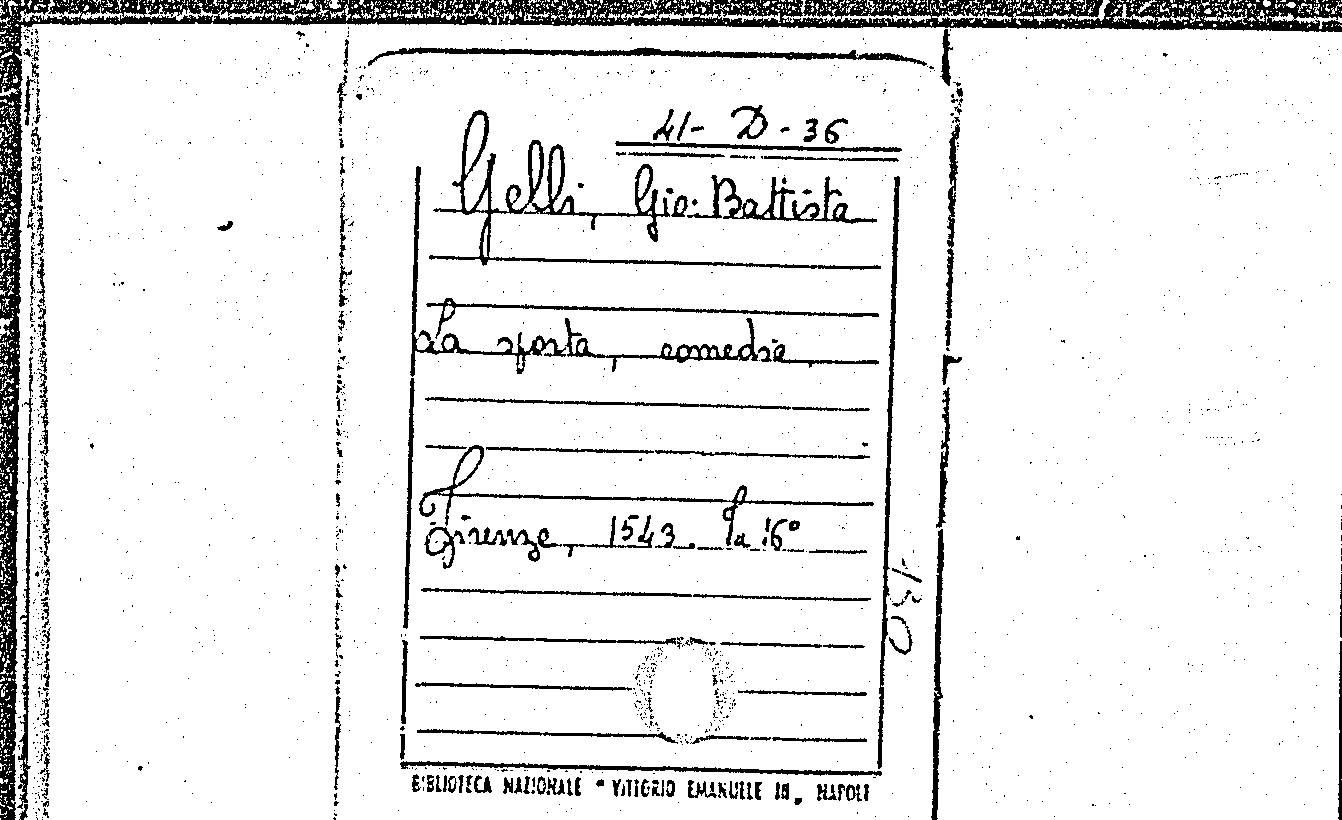 41-D-36
Gelli, Gio: Battista
La sporta, comedia.
Firenze, 1543. In 16°
130
BIBLIOTECA NAZIONALE "VITTORIO EMANUELE III", NAPOLI